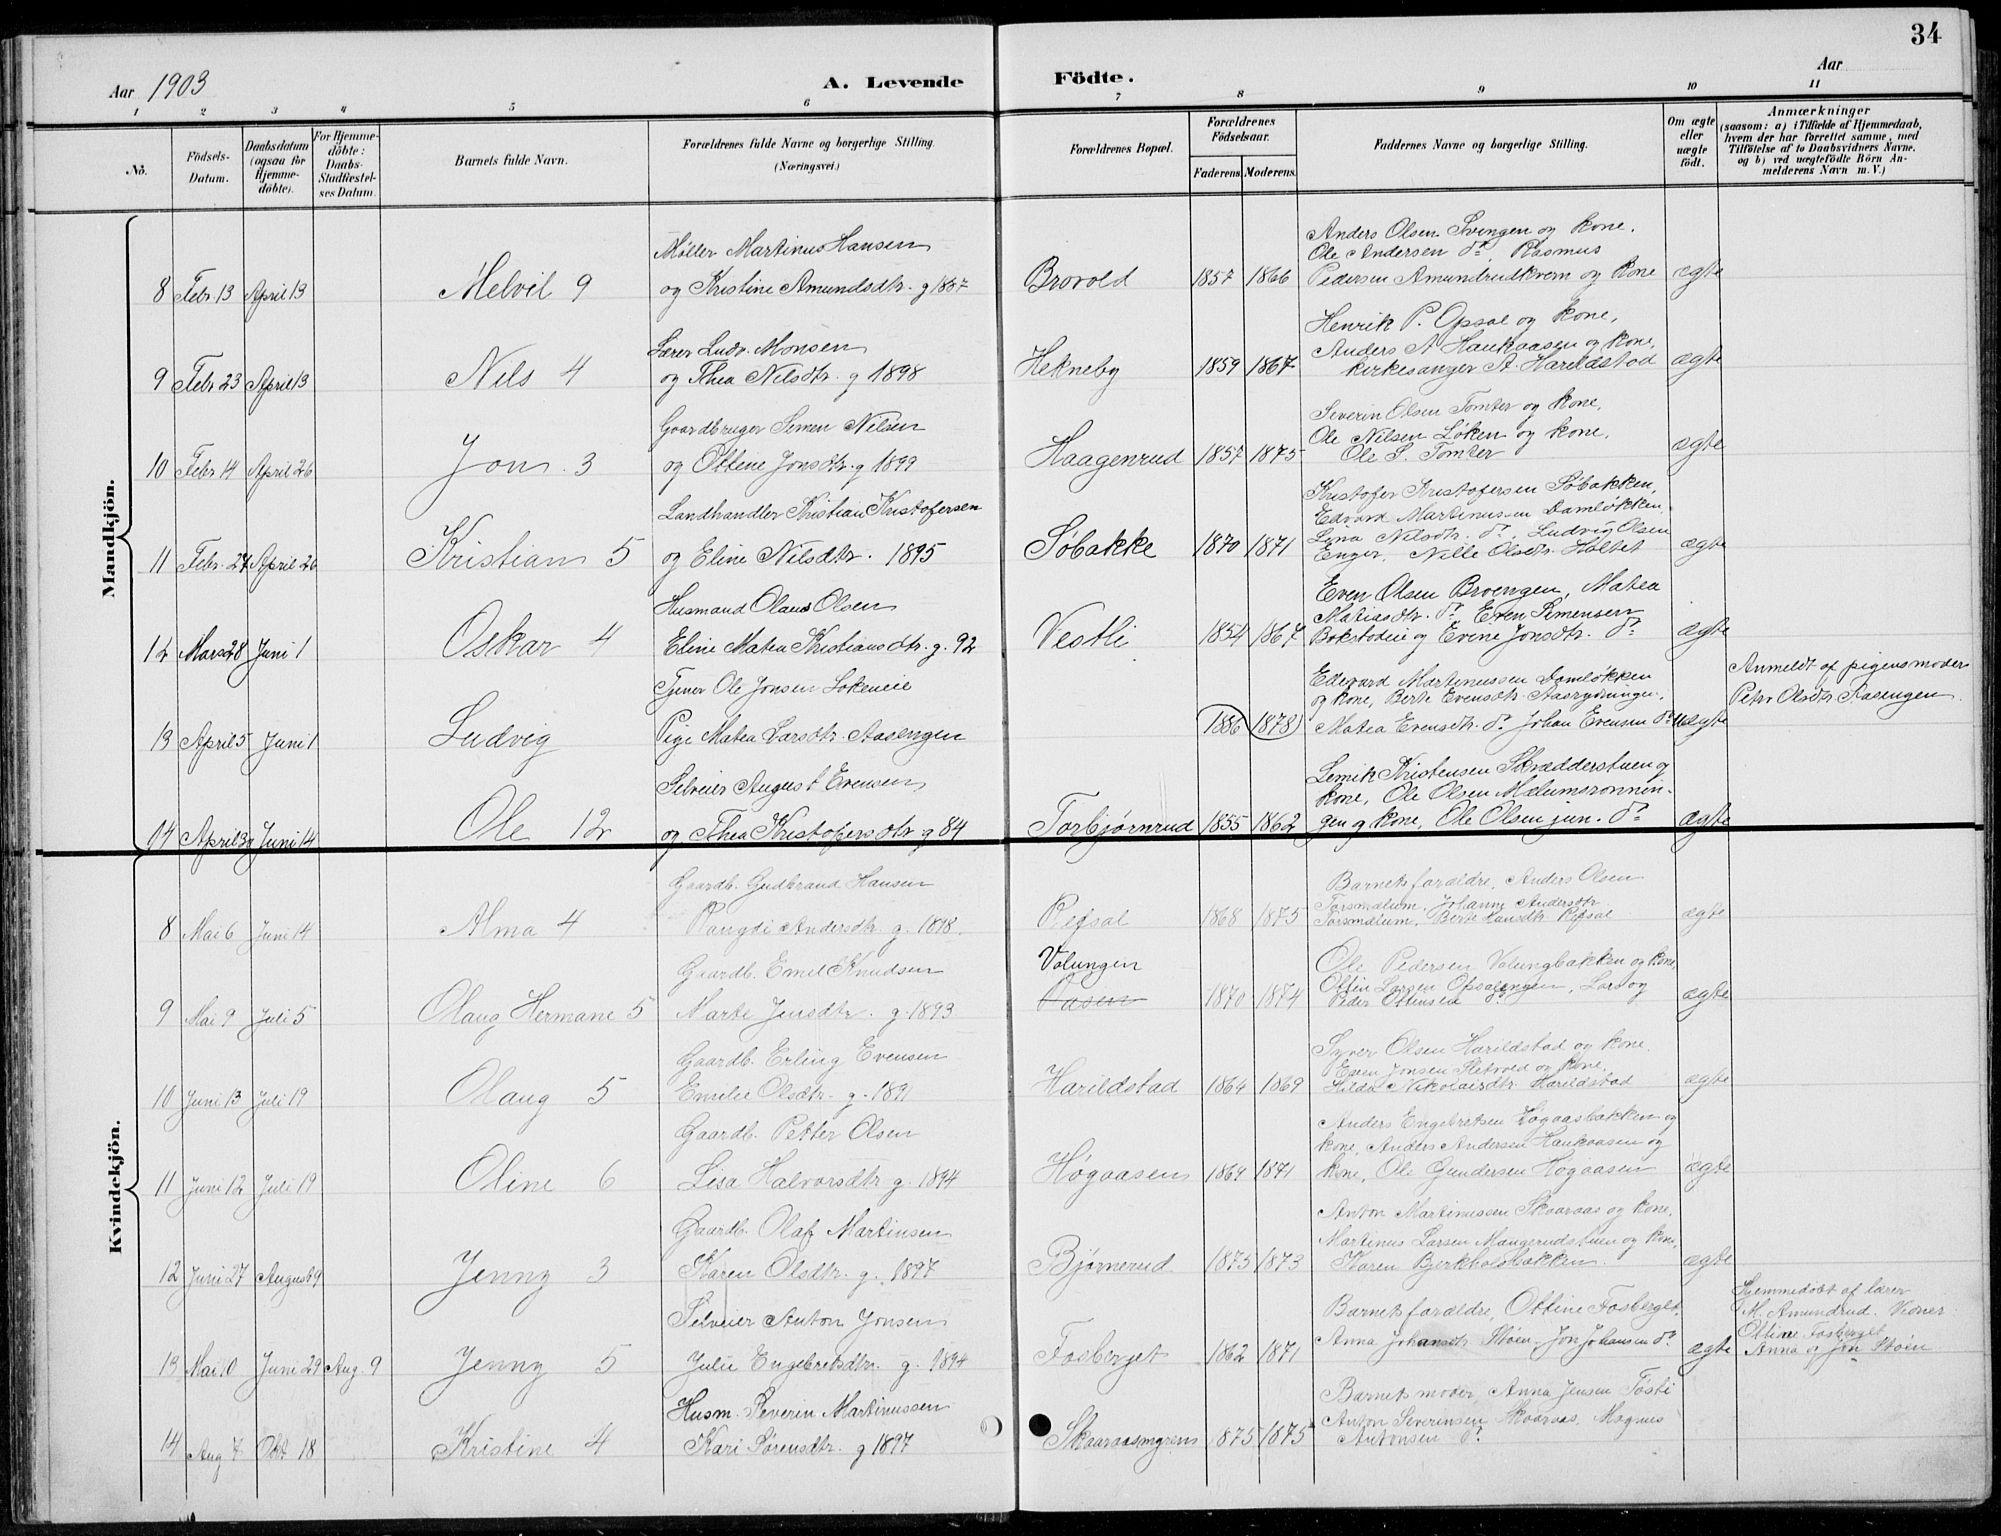 34
Aar 1903
A. Levende Födte.
Aar
1 2 3 4 5 6 7 8 9 10 11
No.
Födsels-Datum.
Daabsdatum (ogsaa for Hjemme-döbte).
For Hjemme-döbte: Daabs-Stadfæstel-ses Datum.
Barnets fulde Navn.
Forældrenes fulde Navne og borgerlige Stilling. (Næringsvei.)
Forældrenes Bopæl.
Forældrenes Födselsaar.
Faderens Moderens
Faddernes Navne og borgerlige Stilling.
Om ægte eller uægte födt.
Anmærkninger
(saasom: a) i Tilfælde af Hjemmedaab, hvem der har forrettet samme, med Tilföielse af to Daabsvidners Navne, og b) ved uægtefödte Börn An-melderens Navn m. V.)
Mandkjön.
Møller Martinus Hansen
Anders Olsen Svingen og kone.
Ole Andersen do, Rasmus
8 Febr. 13 April 13 Melvil 9 og Kristine Amundsdtr. g 1887 Brovold 1857 1866 Pedersen Amundrudkvern og kone ægte
Henrik P. Opsal og kone,
Lærer Ludv. Monsen
Anders A Haukaasen og kone,
9 Febr 23 April 13 Nils 4 og Thea Nilsdtr. g 1898 Hekneby 1859 1867 kirkesanger A. Harildstad ægte
Severin Olsen Tomter og kone,
Gaardbruger Simen Nilsen
Ole Nilsen Løken og kone,
10 Febr 14 April 26 Jon 3 og Ottene Jonsdtr. g 1899 Haagenrud 1857 1875 Ole S. Tomter ægte
Kristofer Kristofersen Søbakken,
Landhandler Kristian Kristofersen
Edvard Martinussen Damløkken
Lina Nilsdtr. do, Ludvig Olsen
11 Febr. 27 April 26 Kristian 5 og Eline Nilsdtr. 1895 Søbakke 1870 1871 Enger, Nille Olsdtr. Holtet ægte
Even Olsen Broengen, Matea
Husmand Olaus Olsen
Matiasdtr. do Even Simensen
12 Mars 28 Juni 1 Oskar 4 Eline Matea Kristiansdtr. g. 92 Vestli 1854 1867 Bakstadeie og Evine Jonsdtr. do ægte
Anmeldt af pigens moder
Petr. Olsdtr Aasengen
Tjener Ole Jonsen Løkeneie
Edevard Martinussen Damløkken
og kone, Berte Evensdtr. Aasrydningen,
13 April 5 Juni 1 Ludvig Pige Matea Larsdtr. Aasengen 1886 1878 Matea Evensdtr. do Johan Evensen do uægte
Lemik Kristensen Skrædderstuen og
Selveier August Evensen
kone, Ole Olsen Mælumsrønnin-
14 April 30 Juni 14 Ole 12 og Thea Kristofersdtr g 84 Torbjørnrud 1855 1862 gen og kone, Ole Olsen jun. do ægte
Kvindekjön.
Gaardb. Gudbrand Hansen
Barnets forældre, Anders Olsen
Torsmælum, Johanne Andersdtr
8 Mai 6 Juni 14 Alma 4 Rangdi Andersdtr. g. 1898. Refsal 1868 1875 Torsmælum, Berte Hansdtr. Refsal ægte
Gaardb. Emil Knudsen
Volungen
Ole Pedersen Volungbakken og kone,
Ottin Larsen Opsalengen, Lars og
9 Mai 9 Juli 5 Olaug Hermane 5 Marte Jensdtr. g. 1893 Aasen 1870 1874 Peder Ottensen do ægte
Gaardb. Erling Evensen
Syver Olsen Harildstad og kone.
Even Jonsen Sletvold og kone,
10 Juni 13 Juli 19 Olaug 5 Emilie Olsdtr. g. 1891 Harildstad 1864 1869 Hilda Nikolaisdtr Harildstad ægte
Gaardb. Petter Olsen
Anders Engebretsen Høgaasbakken og
kone, Anders Andersen Haukaasen og
11 Juni 12 Juli 19 Oline 6 Lisa Halvorsdtr g. 1894 Høgaasen 1864 1871 kone, Ole Gundersen Høgaasen ægte
Gaardb. Olaf Martinsen
Anton Martinussen Skaaraas og kone,
Martinus Larsen Mangerudstuen og kone,
12 Juni 27 August 9 Jenny 3 Karen Olsdtr. g. 1897 Bjørnerud 1875 1873 Karen Bjerkholsbakken. ægte
Selveier Anton Jonsen
Barnets forældre, Ottine Fosberget,
Hjemmedøbt af lærer
M. Amundrud. Vidner
Ottine Fosberget
13 Mai 10 Juni 29 Aug. 9 Jenny 5 Julie Engebretsdtr. g. 1894 Fosberget 1862 1871 Anna Johansdtr. Støen, Jon Johansen do ægte Anna og Jon Støen
Husm. Severin Martinussen
Barnets moder, Anna Jensen Tøsti
Anton Severinsen Skaaraas, Magnus
14 Aug 7 Okt 18 Kristine 4 Kari Sørensdtr. g 1897 Skaaraasmyren 1875 1875 Antonsen do